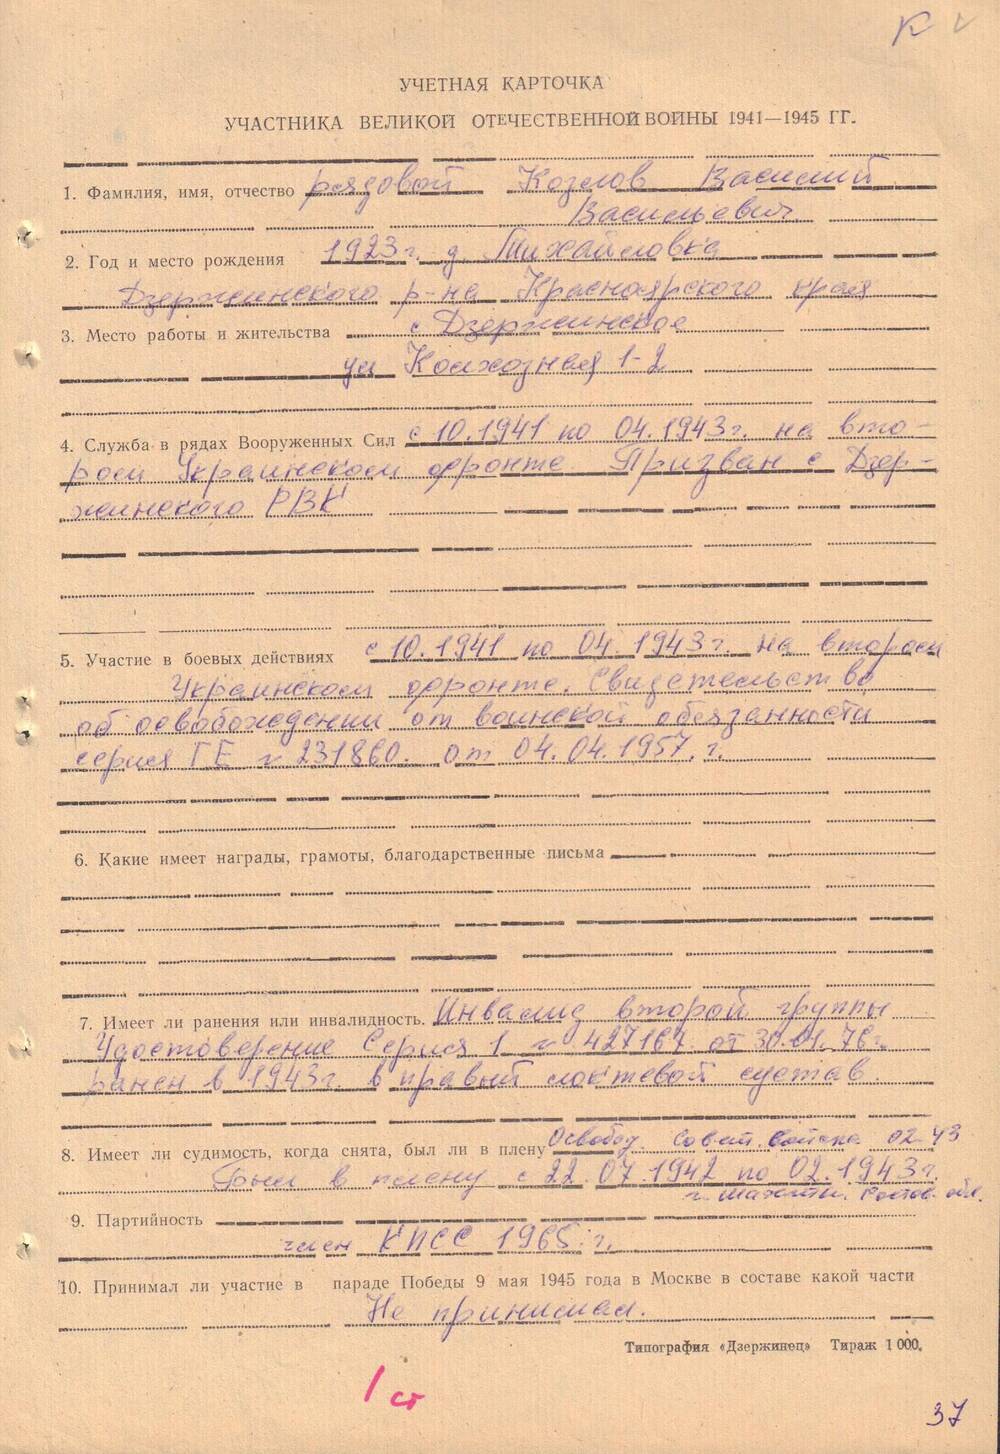 К
УЧЕТНАЯ КАРТОЧКА
УЧАСТНИКА ВЕЛИКОЙ ОТЕЧЕСТВЕННОЙ ВОЙНЫ 1941—1945 ГГ.
1. Фамилия, имя, отчество рядовой Козлов Василий
Васильевич
2. Год и место рождения 1923 г. д. Михайловка
Дзержинского р-на Красноярского края
3. Место работы и жительства с Дзержинское
ул Колхозная 1-2
4. Служба в рядах Вооруженных Сил с 10.1941 по 04.1943 г. на вто-
ром Украинском фронте Призван с Дзер-
жинского РВК
5. Участие в боевых действиях с 10.1941 по 04.1943 г. на втором
Украинском фронте. Свидетельство
об освобождении от воинской обязанности
серия ГЕ № 231860. от 04.04.1957. г.
6. Какие имеет награды, грамоты, благодарственные письма
7. Имеет ли ранения или инвалидность. Инвалид второй группы
Удостоверение Серия 1 № 427167. от 30.01.76 г.
ранен в 1943 г. в правый локтевой сустав.
Освобод. Совет. войска 02.43
8. Имеет ли судимость, когда снята, был ли в плену
Был в плену с 22.07.1942 по 02.1943 г.
г. Шахты. Ростов. обл.
9. Партийность
член КПСС 1965. г.
10. Принимал ли участие в параде Победы 9 мая 1945 года в Москве в составе какой части
Не принимал.
Типография «Дзержинец» Тираж 1 000.
1 ст
37